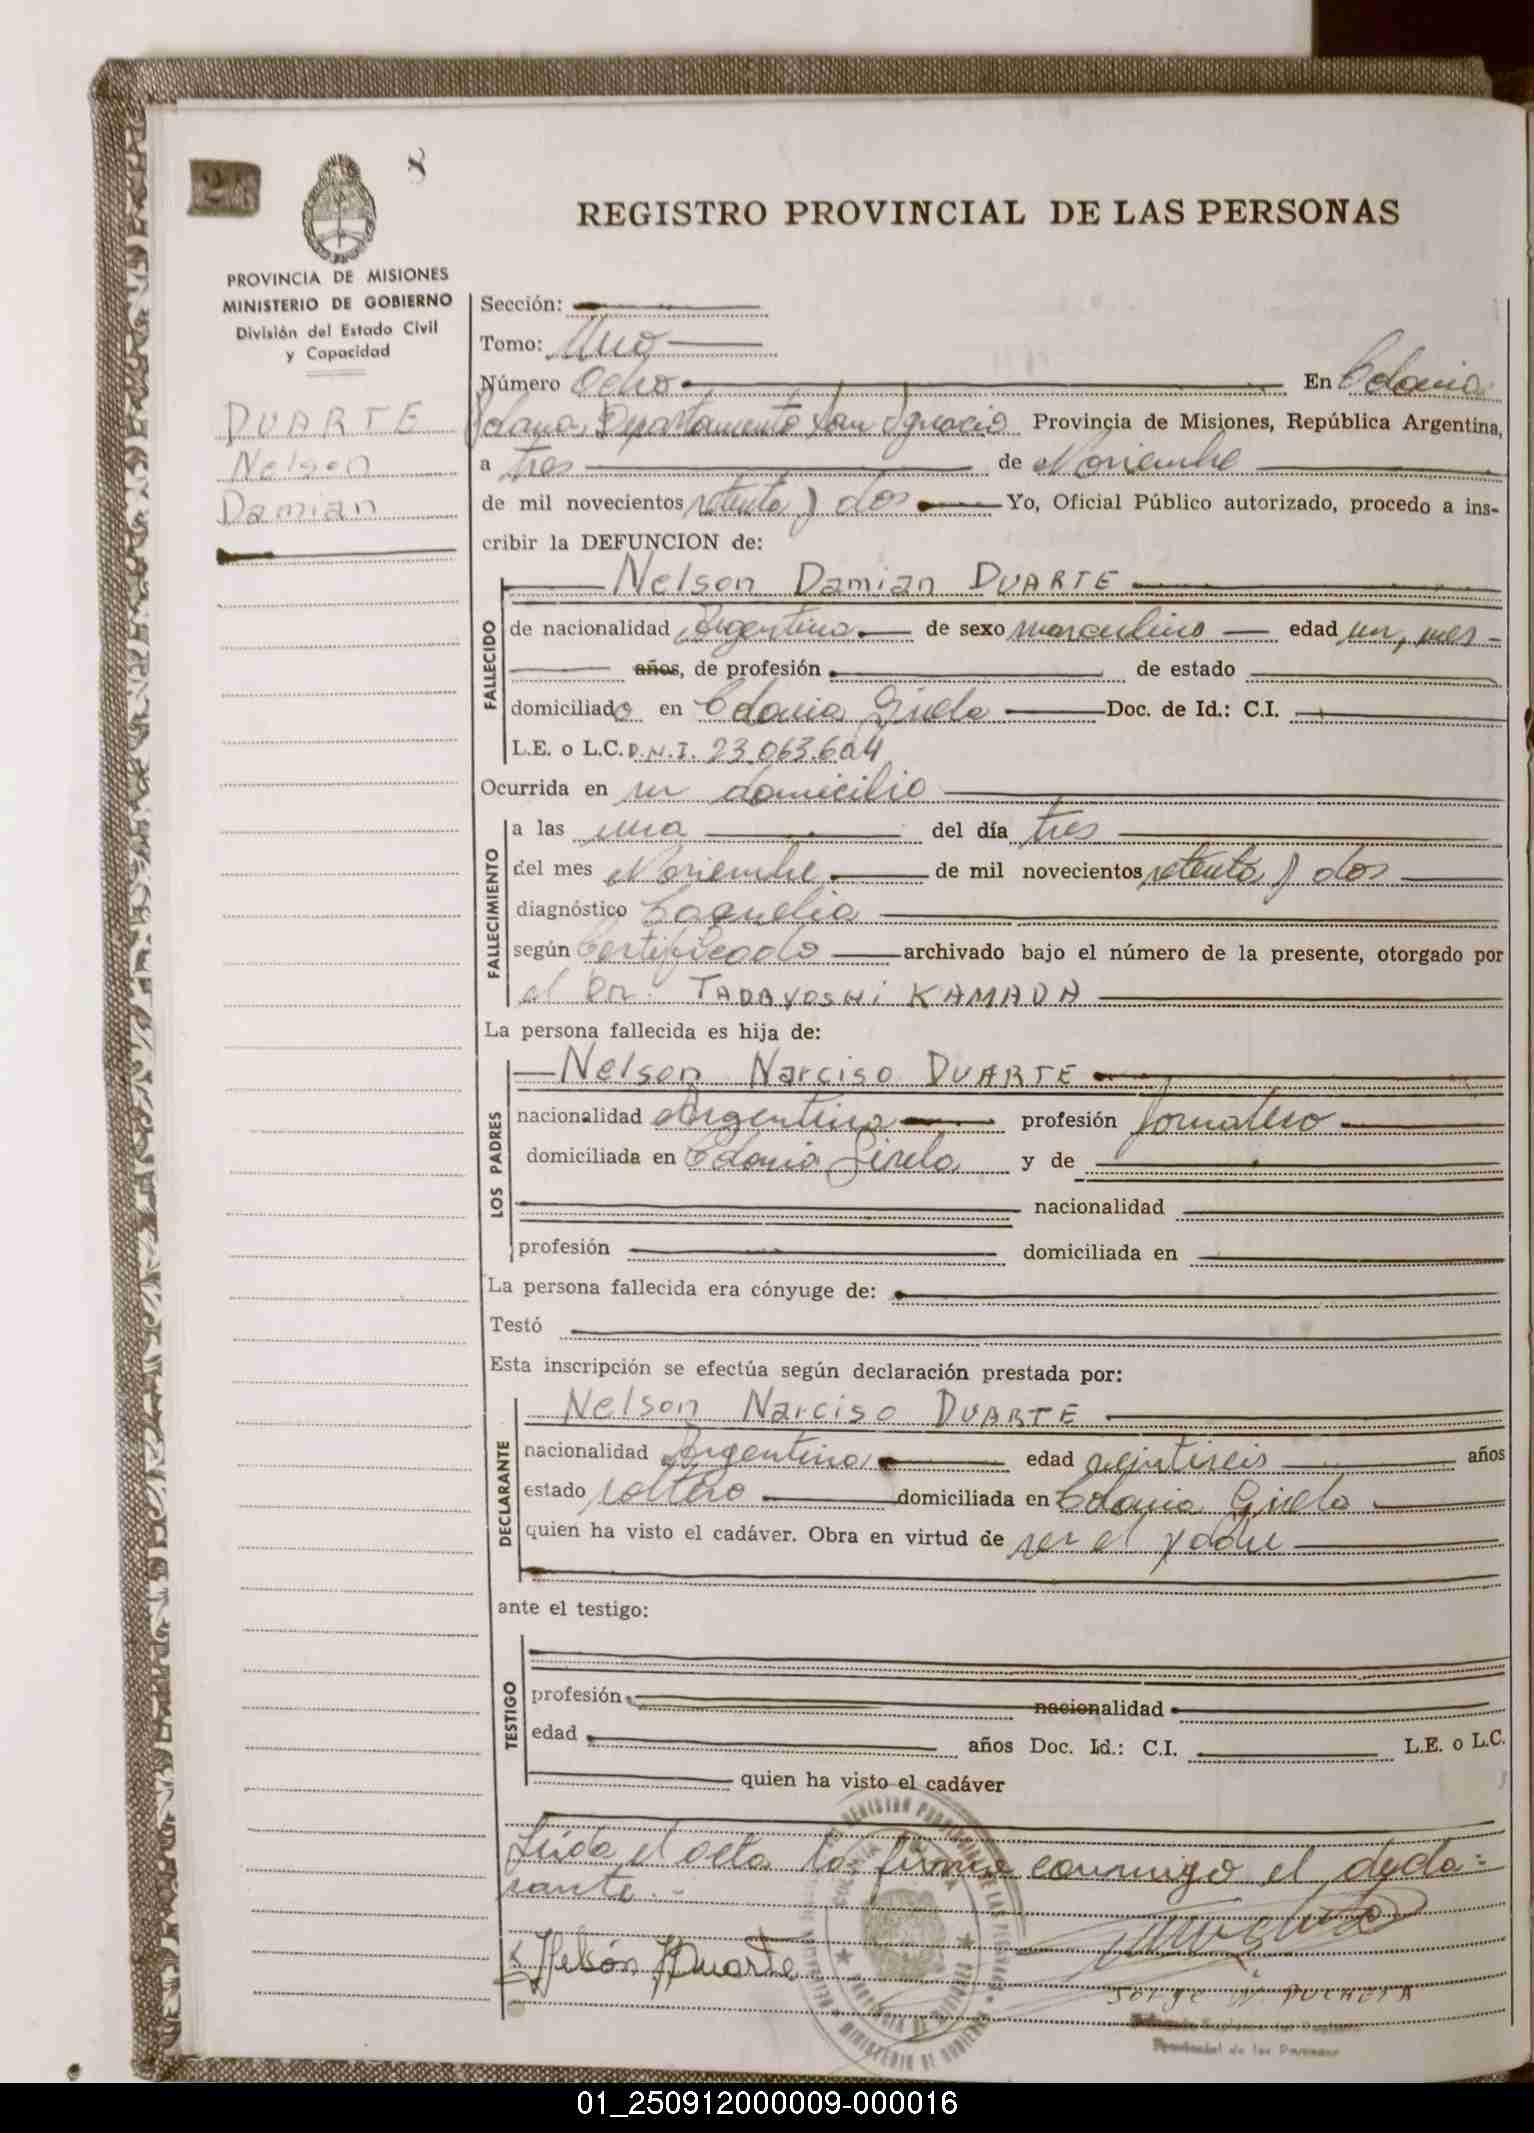 8
REGISTRO PROVINCIAL DE LAS PERSONAS
PROVINCIA DE MISIONES
MINISTERIO DE GOBIERNO
División del Estado Civil
y Capacidad
DUARTE
Nelson
Damian
Sección:
Tomo: Uno
Número Ocho En Colonia
Polana, Departamento San Ignacio Provincia de Misiones, República Argentina,
a tres de Noviembre
de mil novecientos setenta y dos Yo, Oficial Público autorizado, procedo a ins-
cribir la DEFUNCION de:
FALLECIDO
Nelson Damian DUARTE
de nacionalidad Argentina de sexo masculino edad un mes
años, de profesión de estado
domiciliado en Colonia Gisela Doc. de Id.: C.I.
L.E. o L.C. D.N.I. 23.063.604
Ocurrida en su domicilio
FALLECIMIENTO
a las una del día tres
del mes Noviembre de mil novecientos setenta y dos
diagnóstico
según Certificado archivado bajo el número de la presente, otorgado por
el Dr. TADAYOSHi KAMADA
La persona fallecida es hija de:
LOS PADRES
Nelson Narciso DUARTE
nacionalidad Argentina profesión Jornalero
domiciliada en Colonia Gisela y de
nacionalidad
profesión domiciliada en
La persona fallecida era cónyuge de:
Testó
Esta inscripción se efectúa según declaración prestada por:
DECLARANTE
Nelson Narciso DUARTE
nacionalidad Argentina edad veintiseis años
estado soltero domiciliada en Colonia Gisela
quien ha visto el cadáver. Obra en virtud de ser el padre
ante el testigo:
TESTIGO
profesión nacionalidad
edad años Doc. Id.: C.I. L.E. o L.C.
quien ha visto el cadáver
Leída el acta la firma conmigo el decla=
rante.-
Nelsón Duarte
Provincial de las Personas
01_250912000009-000016